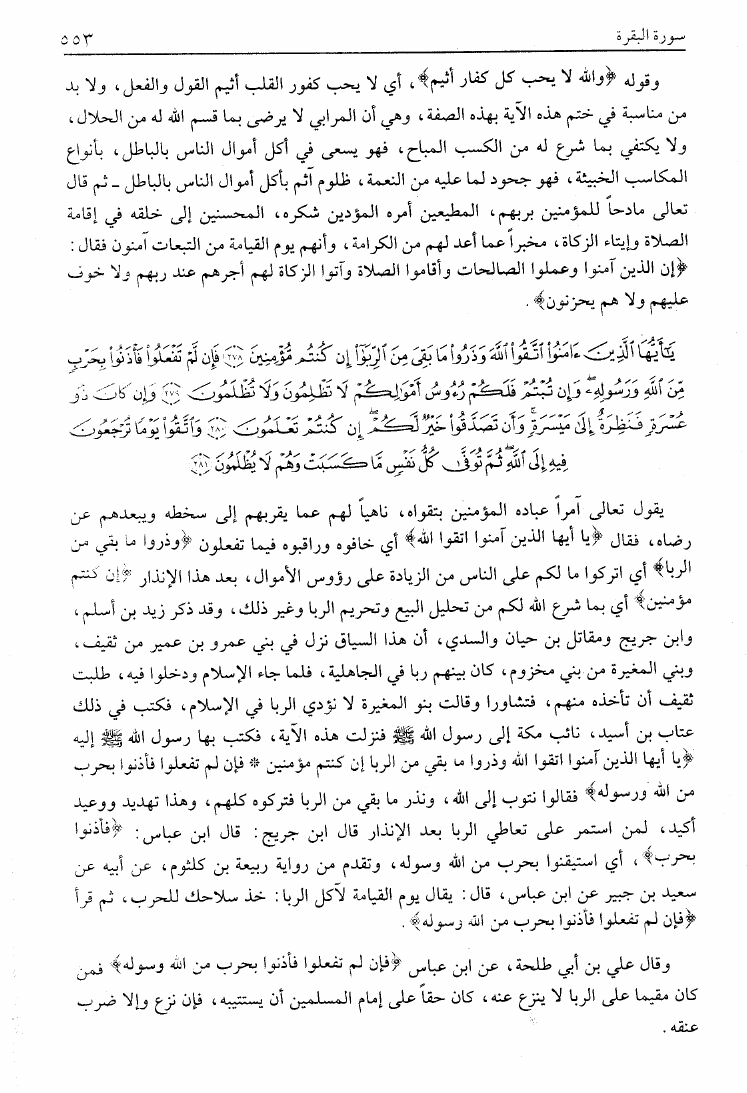 سورة البقرة ٥٥٣
وقوله ﴿والله لا يحب كل كفار أثيم﴾، أي لا يحب كفور القلب أثيم القول والفعل، ولا بد
من مناسبة في ختم هذه الآية بهذه الصفة، وهي أن المرابي لا يرضى بما قسم الله له من الحلال،
ولا يكتفي بما شرع له من الكسب المباح، فهو يسعى في أكل أموال الناس بالباطل، بأنواع
المكاسب الخبيثة، فهو جحود لما عليه من النعمة، ظلوم آثم بأكل أموال الناس بالباطل ـ ثم قال
تعالى مادحاً للمؤمنين بربهم، المطيعين أمره المؤدين شكره، المحسنين إلى خلقه في إقامة
الصلاة وإيتاء الزكاة، مخبراً عما أعد لهم من الكرامة، وأنهم يوم القيامة من التبعات آمنون فقال:
﴿إن الذين آمنوا وعملوا الصالحات وأقاموا الصلاة وآتوا الزكاة لهم أجرهم عند ربهم ولا خوف
عليهم ولا هم يحزنون﴾.
يَٰٓأَيُّهَا ٱلَّذِينَ ءَامَنُوا۟ ٱتَّقُوا۟ ٱللَّهَ وَذَرُوا۟ مَا بَقِىَ مِنَ ٱلرِّبَوٰٓا۟ إِن كُنتُم مُّؤْمِنِينَ ﴿٢٧٨﴾ فَإِن لَّمْ تَفْعَلُوا۟ فَأْذَنُوا۟ بِحَرْبٍ
مِّنَ ٱللَّهِ وَرَسُولِهِۦ ۖ وَإِن تُبْتُمْ فَلَكُمْ رُءُوسُ أَمْوَٰلِكُمْ لَا تَظْلِمُونَ وَلَا تُظْلَمُونَ ﴿٢٧٩﴾ وَإِن كَانَ ذُو
عُسْرَةٍ فَنَظِرَةٌ إِلَىٰ مَيْسَرَةٍ ۚ وَأَن تَصَدَّقُوا۟ خَيْرٌ لَّكُمْ ۖ إِن كُنتُمْ تَعْلَمُونَ ﴿٢٨٠﴾ وَٱتَّقُوا۟ يَوْمًا تُرْجَعُونَ
فِيهِ إِلَى ٱللَّهِ ۖ ثُمَّ تُوَفَّىٰ كُلُّ نَفْسٍ مَّا كَسَبَتْ وَهُمْ لَا يُظْلَمُونَ ﴿٢٨١﴾
يقول تعالى آمراً عباده المؤمنين بتقواه، ناهياً لهم عما يقربهم إلى سخطه ويبعدهم عن
رضاه، فقال ﴿يا أيها الذين آمنوا اتقوا الله﴾ أي خافوه وراقبوه فيما تفعلون ﴿وذروا ما بقي من
الربا﴾ أي اتركوا ما لكم على الناس من الزيادة على رؤوس الأموال، بعد هذا الإنذار ﴿إن كنتم
مؤمنين﴾ أي بما شرع الله لكم من تحليل البيع وتحريم الربا وغير ذلك، وقد ذكر زيد بن أسلم،
وابن جريج ومقاتل بن حيان والسدي، أن هذا السياق نزل في بني عمرو بن عمير من ثقيف،
وبني المغيرة من بني مخزوم، كان بينهم ربا في الجاهلية، فلما جاء الإسلام ودخلوا فيه، طلبت
ثقيف أن تأخذه منهم، فتشاورا وقالت بنو المغيرة لا نؤدي الربا في الإسلام، فكتب في ذلك
عتاب بن أسيد، نائب مكة إلى رسول الله ﷺ فنزلت هذه الآية، فكتب بها رسول الله ﷺ إليه
﴿يا أيها الذين آمنوا اتقوا الله وذروا ما بقي من الربا إن كنتم مؤمنين * فإن لم تفعلوا فأذنوا بحرب
من الله ورسوله﴾ فقالوا نتوب إلى الله، ونذر ما بقي من الربا فتركوه كلهم، وهذا تهديد ووعيد
أكيد، لمن استمر على تعاطي الربا بعد الإنذار قال ابن جريج: قال ابن عباس: ﴿فأذنوا
بحرب﴾، أي استيقنوا بحرب من الله وسوله، وتقدم من رواية ربيعة بن كلثوم، عن أبيه عن
سعيد بن جبير عن ابن عباس، قال: يقال يوم القيامة لآكل الربا: خذ سلاحك للحرب، ثم قرأ
﴿فإن لم تفعلوا فأذنوا بحرب من الله رسوله﴾.
وقال علي بن أبي طلحة، عن ابن عباس ﴿فإن لم تفعلوا فأذنوا بحرب من الله وسوله﴾ فمن
كان مقيما على الربا لا ينزع عنه، كان حقاً على إمام المسلمين أن يستتيبه، فإن نزع وإلا ضرب
عنقه.